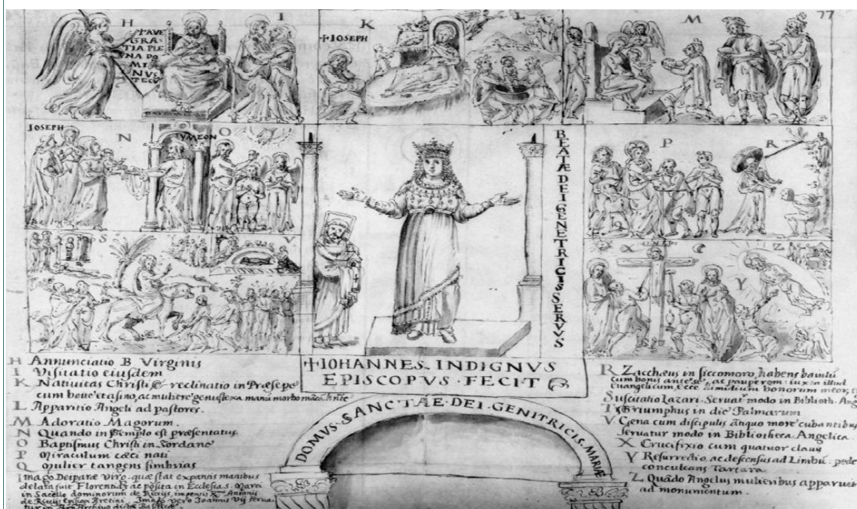 77
H I K L M
AVE
GRA
TIA PLE
NA DO
MI
NVS
TECV
IOSEPH
IOSEPH N O P R
BEATAE DEI GENETRICIS SERVVS
S V X Y Z
+IOHANNES INDIGNVS
EPISCOPVS FECIT
DOMVS SANCTAE DEI GENITRICIS MARIAE
H Annunciatio B Virginis
I Visitatio eiusdem
K Nativitas Christi reclinatio in Præsepe
cum bove et asino, ac muliere genuflexa
L Apparitio Angeli ad pastores.
M Adoratio Magorum.
N Quando in templo est præsentatus
O Baptismus Christi in Jordane
P Miraculum cæci nati
Q Mulier tangens fimbrias
Imago Deiparæ Virg. quæ stat expansis manibus
delata fuit Florentiam ac posita in Ecclesia S. Marci
in Sacello dominorum de Ricijs
Imago vero Joannis VII
R Zachæus in siccomoro, habens
Suscitatio Lazari. Servatur modo in Biblioth.
T Triumphus in die Palmarum
V Cena cum discipulis
servatur modo in Bibliotheca Angelica
X Crucifixio cum quatuor clavis
Y Resurrectio, ac descensus ad Limbū
conculcans Tartara.
Z Quādo Angelus mulieribus apparuit
ad monumentum.